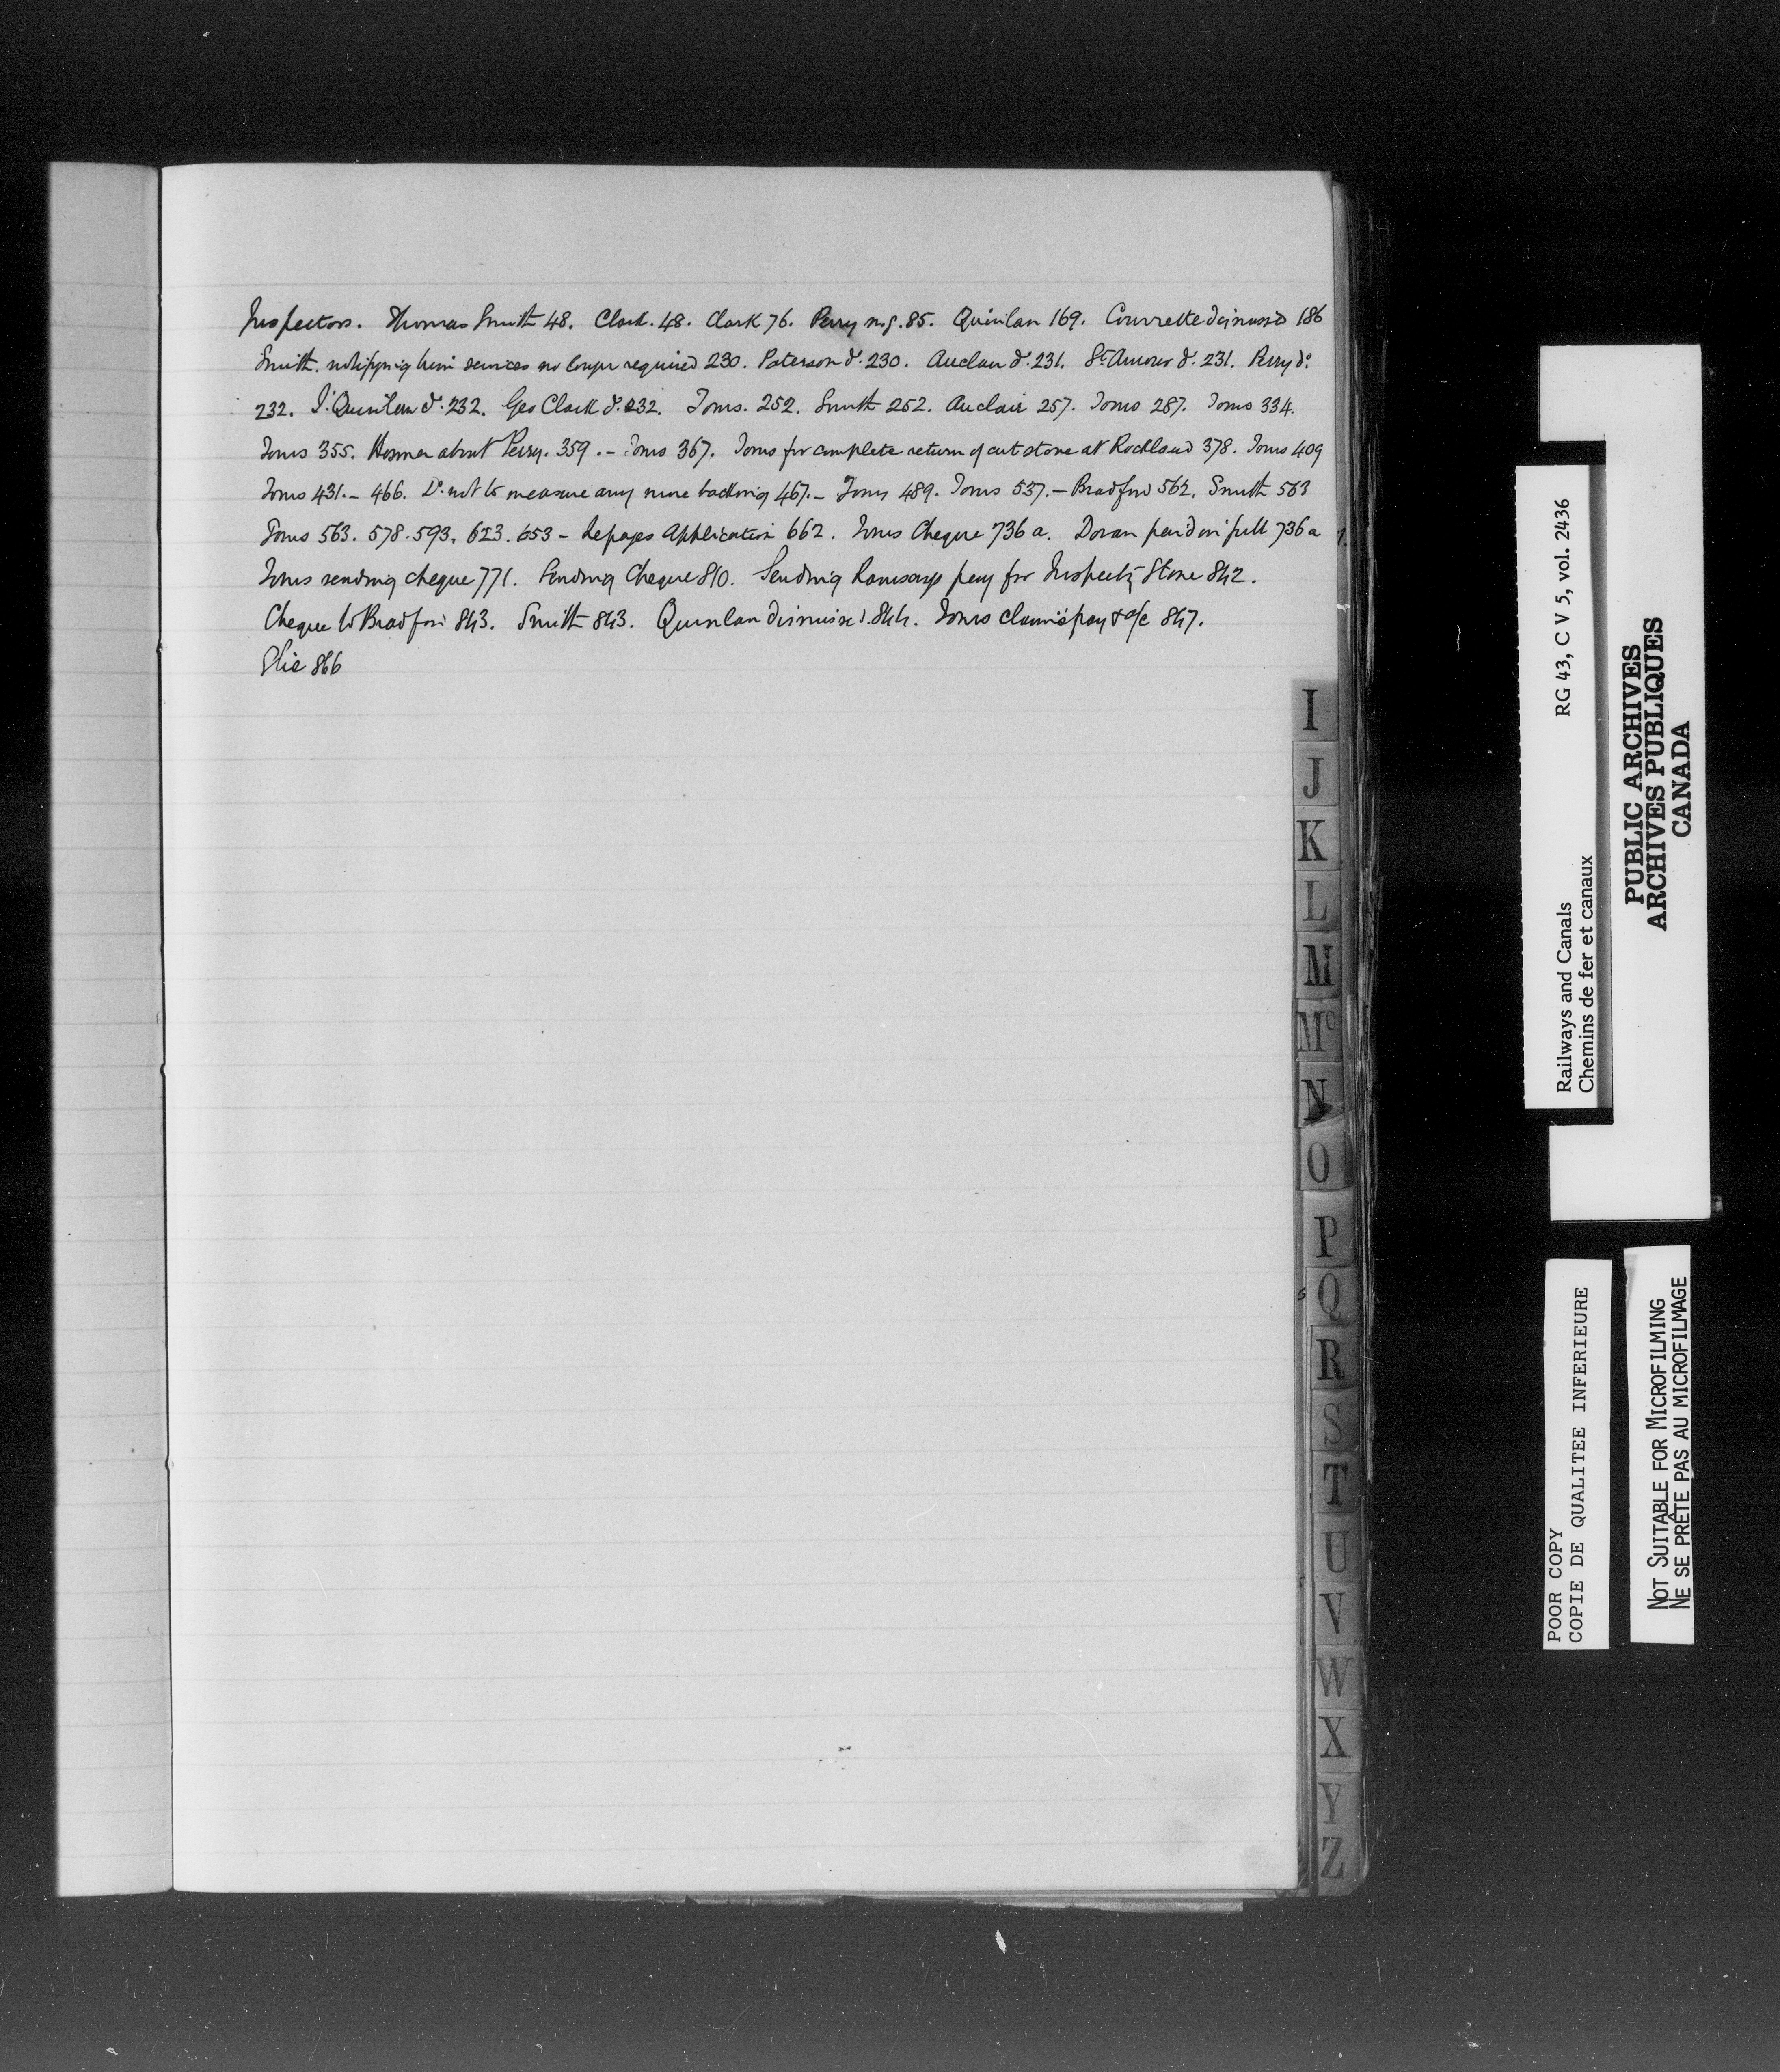 Inspectors. Thomas Smith 48. Clark. 48. Clark 76. Perry 85. Quinlan 169. Couvrette dismissed 186
Smith. notifying him services no longer required 230. Paterson do. 230. Auclair do. 231. St. Amour do. 231. Perry do.
232. Quinlan do. 232. Geo Clark do. 232. Toms. 252. Smith 252. Auclair 257. Toms 287. Toms 334.
Toms 355. about Perry. 359. - Toms 367. Toms for complete return of cut stone at Rockland 378. Toms 409
Toms 431. - 466. Do. not to measure any more backing 467. - Toms 489. Toms 537. - Bradford 562. Smith 563
Toms 563. 578. 593. 623. 653 - Lepages Application 662. Toms Cheque 736a. Doran paid in full 736a
Toms sending cheque 771. Sending Cheque 810. Sending Ramsays pay for Inspectg Stone 842.
Cheque to Bradford 843. Smith 843. Quinlan dismissed 844. Toms pay & a/c 847.
Elie 866
I
J
K
L
M
Mc
N
O
P
Q
R
S
T
U
V
W
X
Y
Z
Railways and Canals RG 43, C V 5, vol. 2436
Chemins de fer et canaux
PUBLIC ARCHIVES
ARCHIVES PUBLIQUES
CANADA
POOR COPY
COPIE DE QUALITEE INFERIEURE
NOT SUITABLE FOR MICROFILMING
NE SE PRÊTE PAS AU MICROFILMAGE